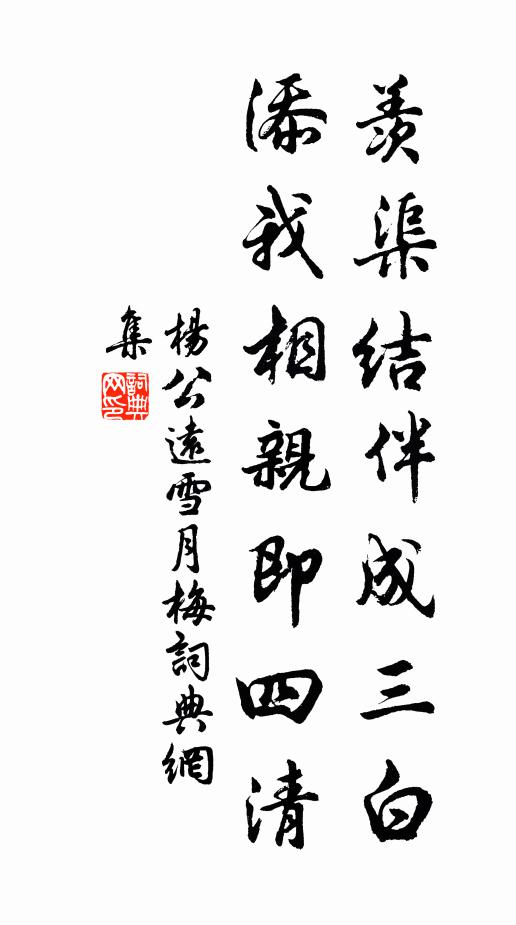 羨渠結伴成三白
添我相親即四清
楊公遠雪月梅詞典網
集
詞典
网印